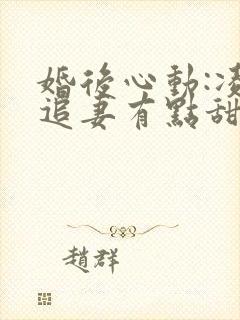 婚後心動:凌
追妻有點甜
趙群